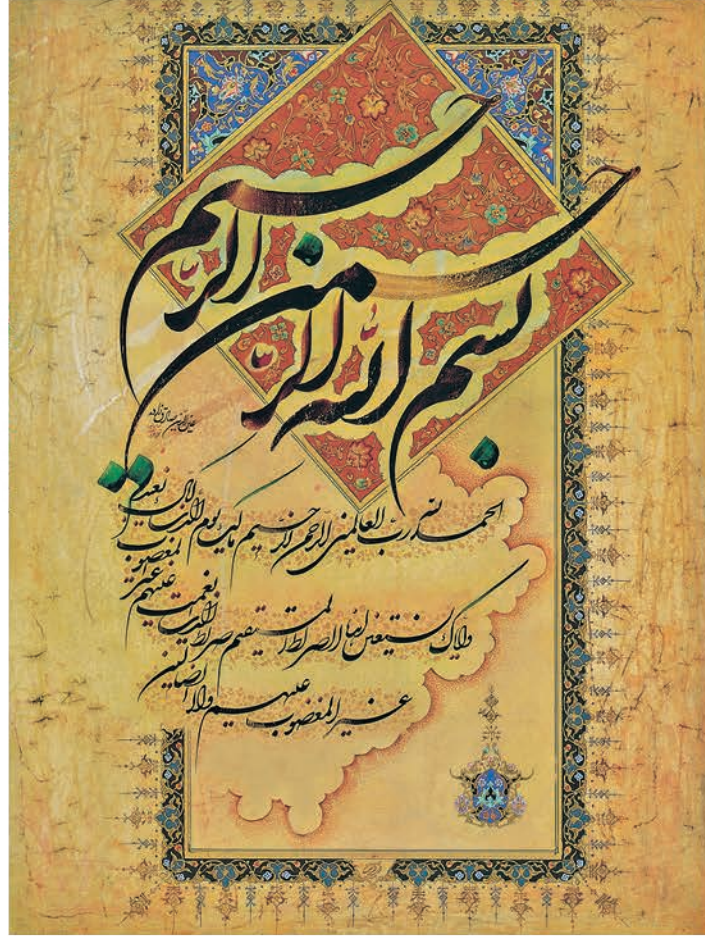 بسم الله الرحمن الرحيم
الحمد لله رب العالمين الرحمن الرحيم مالك يوم الدين اياك نعبد
واياك نستعين اهدنا الصراط المستقيم صراط الذين انعمت عليهم غير المغضوب
غير المغضوب عليهم ولا الضالين